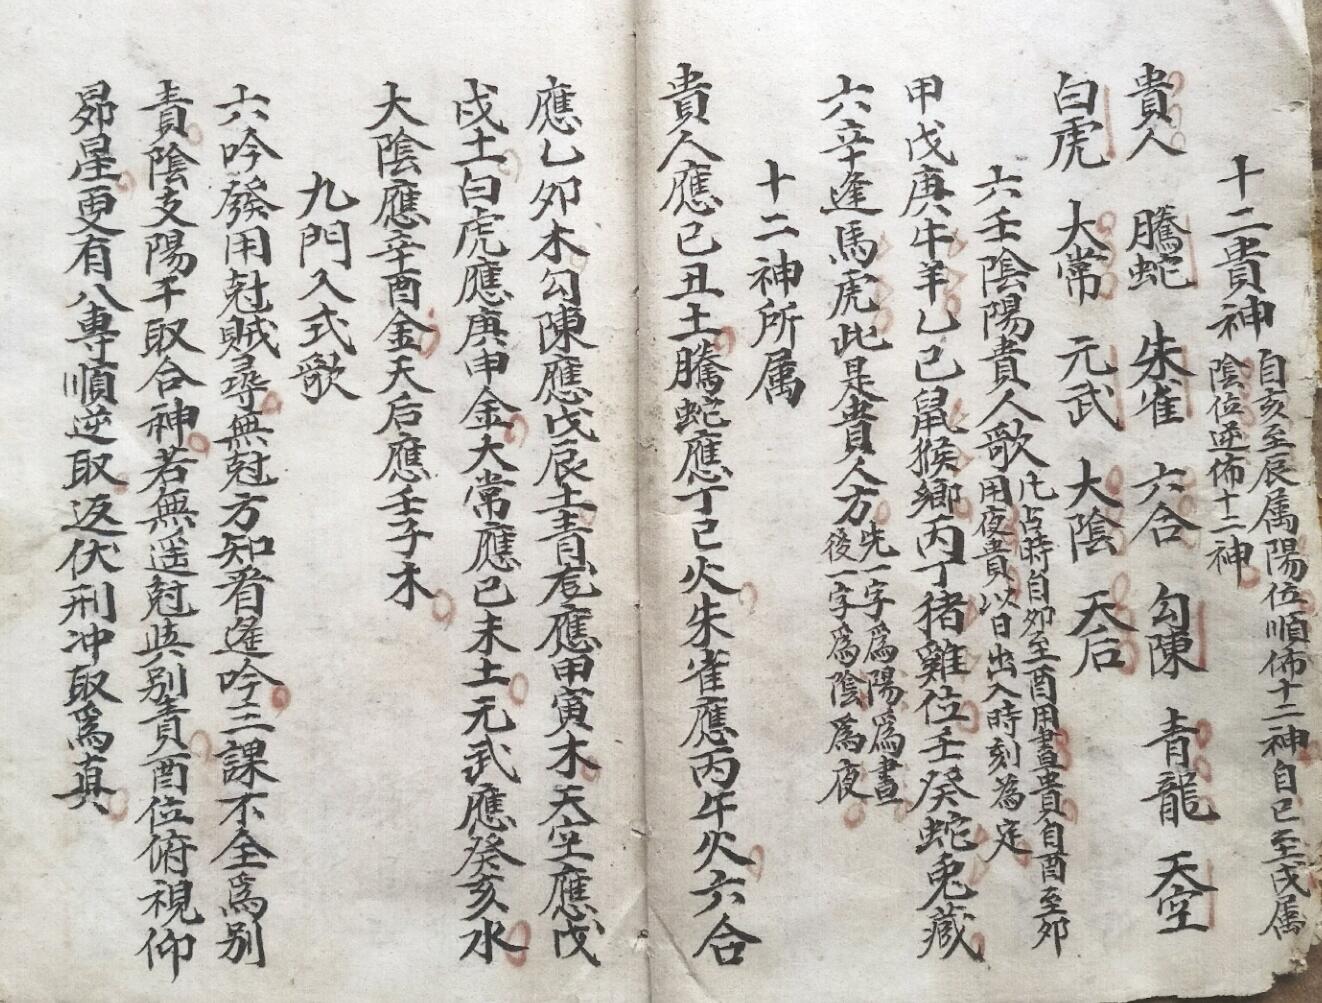 十二貴神 自亥至辰属陽位順佈十二神自巳至戌属
陰位逆佈十二神
貴人 騰蛇 朱雀 六合 勾陳 青龍 天空
白虎 大常 元武 大陰 天后
六壬陰陽貴人歌 凡占時自夘至酉用晝貴自酉至夘
用夜貴以日出入時刻為定
甲戊庚牛羊乙己鼠猴鄉丙丁猪雞位壬癸蛇兎藏
六辛逢馬虎此是貴人方 先一字爲陽爲晝
後一字爲陰爲夜
十二神所属
貴人應己丑土騰蛇應丁巳火朱雀應丙午火六合
應乙夘木勾陳應戊辰土青龙應甲寅木天空應戊
戌土白虎應庚申金大常應己未土元武應癸亥水
大陰應辛酉金天后應壬子水
九門入式歌
六吟發用尅賊尋無尅方知看遙吟三課不全爲別
責陰支陽干取合神若無遥尅與別責酉位俯視仰
昴星更有八專順逆取返伏刑冲取爲真